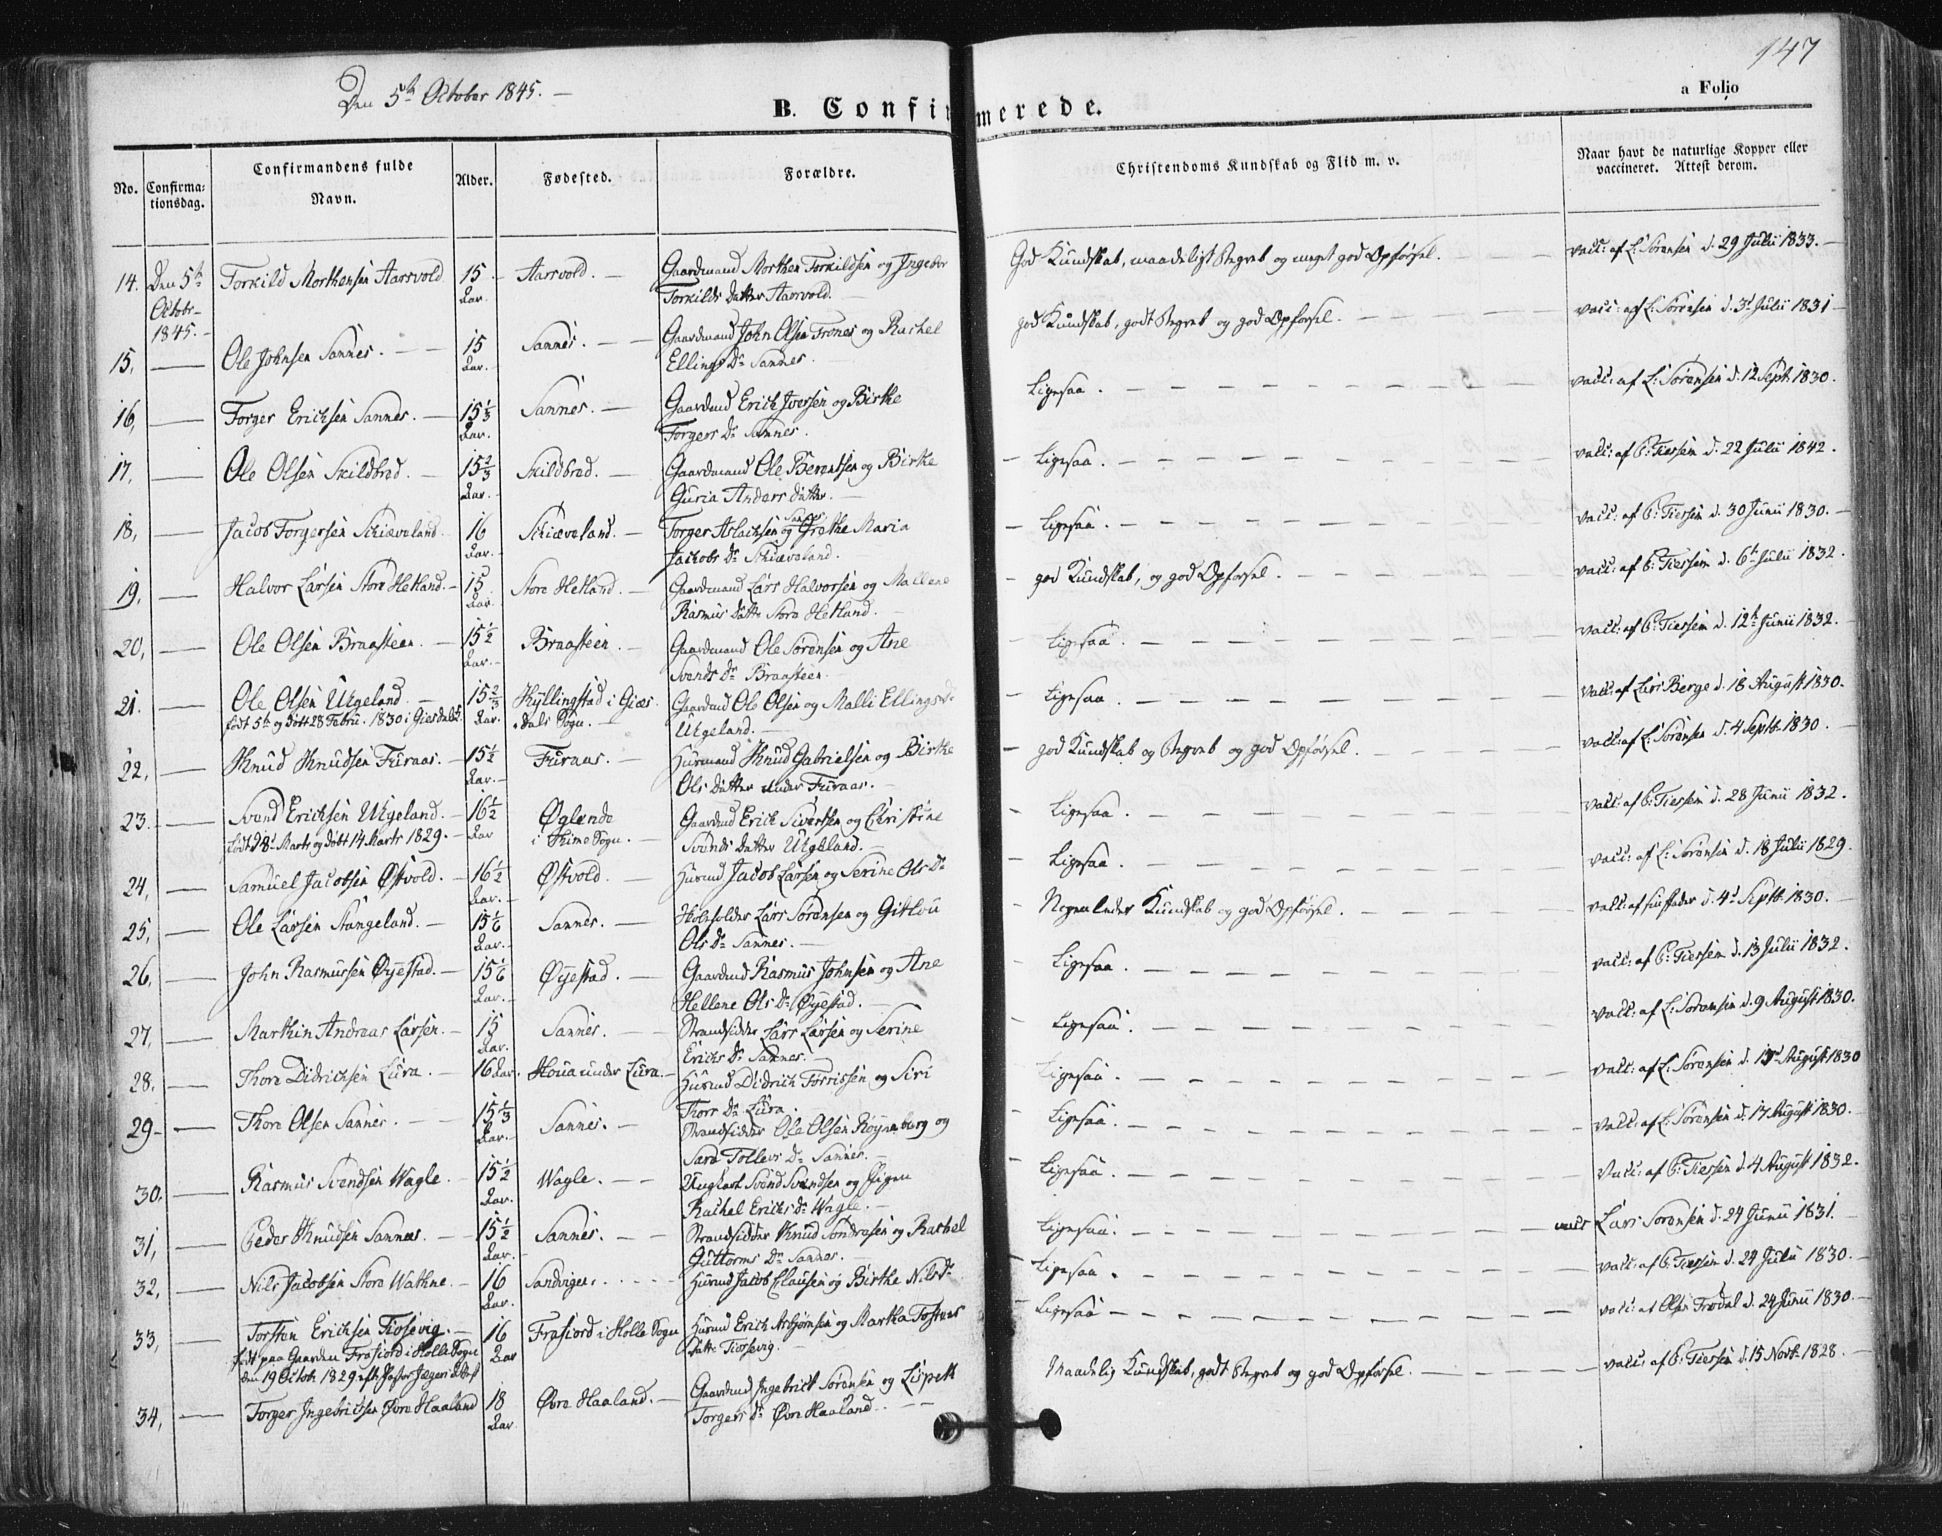 147
Den 5te October 1845. —
B. Confirmerede.
a Folio
No.
Confirma-
tionsdag.
Confirmandens fulde
Navn.
Alder.
Fødested.
Forældre.
Christendoms Kundskab og Flid m. v.
Naar havt de naturlige Kopper eller
vaccineret. Attest derom.
14. Den 5te Octobr. 1845. Torkild Morthensen Aarsvold 15 Aar. Aarsvold. — Gaardmand Morthen Torkildsen og Ingebor
Torkilds Datter Aarsvold. God Kundskab, maadeligt Begreb og meget god Opførsel. vacc: af L: Sørensen d. 29 Julii 1833.
15, Ole Johnsen Sannes. 15 Aar. Sannes. Gaardmand John Olsen Trones og Rachel
Ellings Dr Sannes. god Kundskab, godt Begreb og god Opførsel. vacc: af L: Sørensen d. 3d Julii 1831
16, Torger Erichsen Sannes. 15 1/3 Aar. Sannes. Gaardmd Erich Iversen og Birthe
Torgers Dr Sannes. Ligesaa. vacc: af L: Sørensen d. 12 Sept. 1830.
17, Ole Olsen Skildbred. 15 2/3 Aar. Skildbred. Gaardmand Ole Berentsen og Birthe
Guria Anders Datter. Ligesaa. vacc: af C: Tiersen d. 22 Julii 1842.
18, Jacob Torgersen Schiæveland. 16 Aar. Schiæveland. Torger Aslachsen Sannes og Grethe Maria
Jachobs Dr Schiæveland. Ligesaa. vacc: af C: Tiersen d. 30 Junii 1830.
19, Halvor Larsen Store Hetland. 15 Aar. Store Hetland. Gaardmand Lars Halvorsen og Mallene
Rasmus Datt Store Hetland. god Kundskab, og god Opførsel. vacc: af C: Tiersen d. 6te Julii 1832.
20, Ole Olsen Braasteen. 15 1/2 Aar. Braasteen. Gaardmand Ole Sørensen og Ane
Svends Dr Braasteen. Ligesaa. vacc: af C: Tiersen d. 12te Junii 1832.
21. Ole Olsen Uegeland. 15 2/3 Aar. Kyllingstad i Giæs-
dals Sogn. Gaardmd Ole Olsen og Malli Ellings Dr
Uegeland. Ligesaa. vacc: af Lars Berge d. 18 August 1830.
født 5te og døbt 28 Febru. 1830 i Giesdal.
22, Knud Knudsen Furaas. 15 1/2 Aar. Furaas. Huusmand Knud Gabrielsen og Birthe
Ols Datter under Furaas. god Kundskab og Begreb og god Opførsel. vacc: af L: Sørensen d. 4 Septb 1830.
23. Svend Erichsen Uegeland. 16 1/2 Aar Øglende
i Thime Sogn. Gaardmd Erich Sivertsen og Christine
Svends Datter Uegeland. Ligesaa. vacc: af C: Tiersen d. 28 Junii 1832.
født d 8d Marts og døbt 14 Marts 1829.
24, Samuel Jacobsen Østvold. 16 1/2 Aar. Østvold. Huusmd Jacob Larsen og Serine Ols Dr Ligesaa. vacc: af L: Sørensen d. 18 Julii 1829.
25, Ole Larsen Stangeland. 15 1/6 Aar. Sannes. Lars Sørensen og Gitlou
Ols Dr Sannes. Nogenledes Kundskab og god Opførsel. vacc: af sin Fader d. 4d Septb 1830.
26, John Rasmusen Øyestad. 15 1/6 Aar. Øyestad. Gaardmd Rasmus Johnsen og Ane
Hellene Ols Dr Øyestad. Ligesaa. vacc: af C: Tiersen d. 13 Julii 1832.
27, Marthin Andreas Larsen. 15 Aar. Sannes. Strandsidder Lars Larsen og Serine
Erichs Dr Sannes. Ligesaa. vacc: af L: Sørensen d. 9 August 1830.
28. Thore Didrichsen Lura. 16 Aar. Houa under Lura. Huusmd Didrich Torrissen og Siri
Thors Dr Lura. Ligesaa. vacc: af L: Sørensen d. August 1830
29. Thore Olsen Sannes. 15 1/3 Aar. Sannes. Strandsidder Ole Olsen Røyneberg og
Sara Tollevs Dr Sannes. Ligesaa. vacc: af L: Sørensen d. 17 August 1830.
30. Rasmus Svendsen Wagle. 15 1/2 Aar. Wagle. Ungkarl Svend Svendsen og Pigen
Rachel Erichs Dr Wagle. Ligesaa. Vacc: af C: Tiersen d. 4 August 1832.
31, Peder Knudsen Sannes. 15 1/2 Aar. Sannes. Strandsidder Knud Tondresen og Rachel
Guttorms Dr Sannes. Ligesaa. vacc Lars Sørensen d. 24 Junii 1831.
32, Nils Jacobsen Store Wathne. 16 Aar. Sandvigen. Huusmd Jacob Clausen og Birthe Nils Dr Ligesaa. vacc: af C: Tiersen d. 24 Julii 1830.
33, Torsten Erichsen Tiosevig. 16 Aar Frafiord i Holle Sogn Huusmd Erich Asbjørnsen og Martha Tostens
Datt Tiossevig. Ligesaa vacc: af Olsen Trødal d. 24 Junii 1830.
født paa Gaarden Frafiord i Holle Sogn
den 19 Octob. 1829 efter Pastor Jægers Attest
34, Torger Ingebrictsen Øvre Haaland 18 Aar Øvre Haaland. Gaardmd Ingebrict Sørensen og Lispeth
Torgers Dr Øvre Haaland. Maadelig Kundskab, godt Begreb og god Opførsel. vacc: af C: Tiersen d. 15 Novb. 1828.